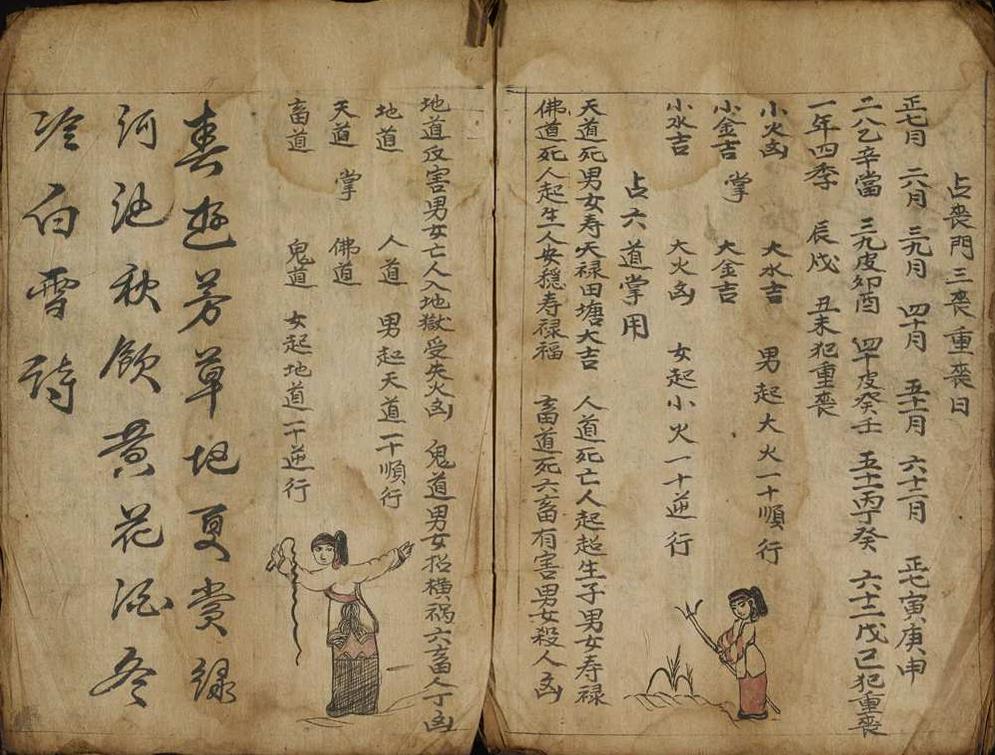 占丧門三丧重丧日
正七月 二八月 三九月 四十月 五十一月 六十二月 正七寅庚申
二八乙辛當 三九皮卯酉 四十皮癸壬 五十一丙丁癸 六十二戊己犯重丧
一年四季 辰戌 丑未犯重丧
小火凶 大水吉 男起大火一十順行
小金吉 掌 大金吉
小水吉 大火凶 女起小火一十逆行
占六道掌用
天道死男女寿天禄田塘大吉 人道死亡人起超生子男女寿禄
佛道死人起生人安穩寿禄福 畜道死六畜有害男女殺人凶
地道反害男女亡人入地獄受失火凶 鬼道男女招横祸六畜人丁凶
地道 人道 男起天道一十順行
天道 掌 佛道
畜道 鬼道 女起地道一十逆行
春遊芳草地夏賞緑
河池秋飲黄花酒冬
冷白雪詩